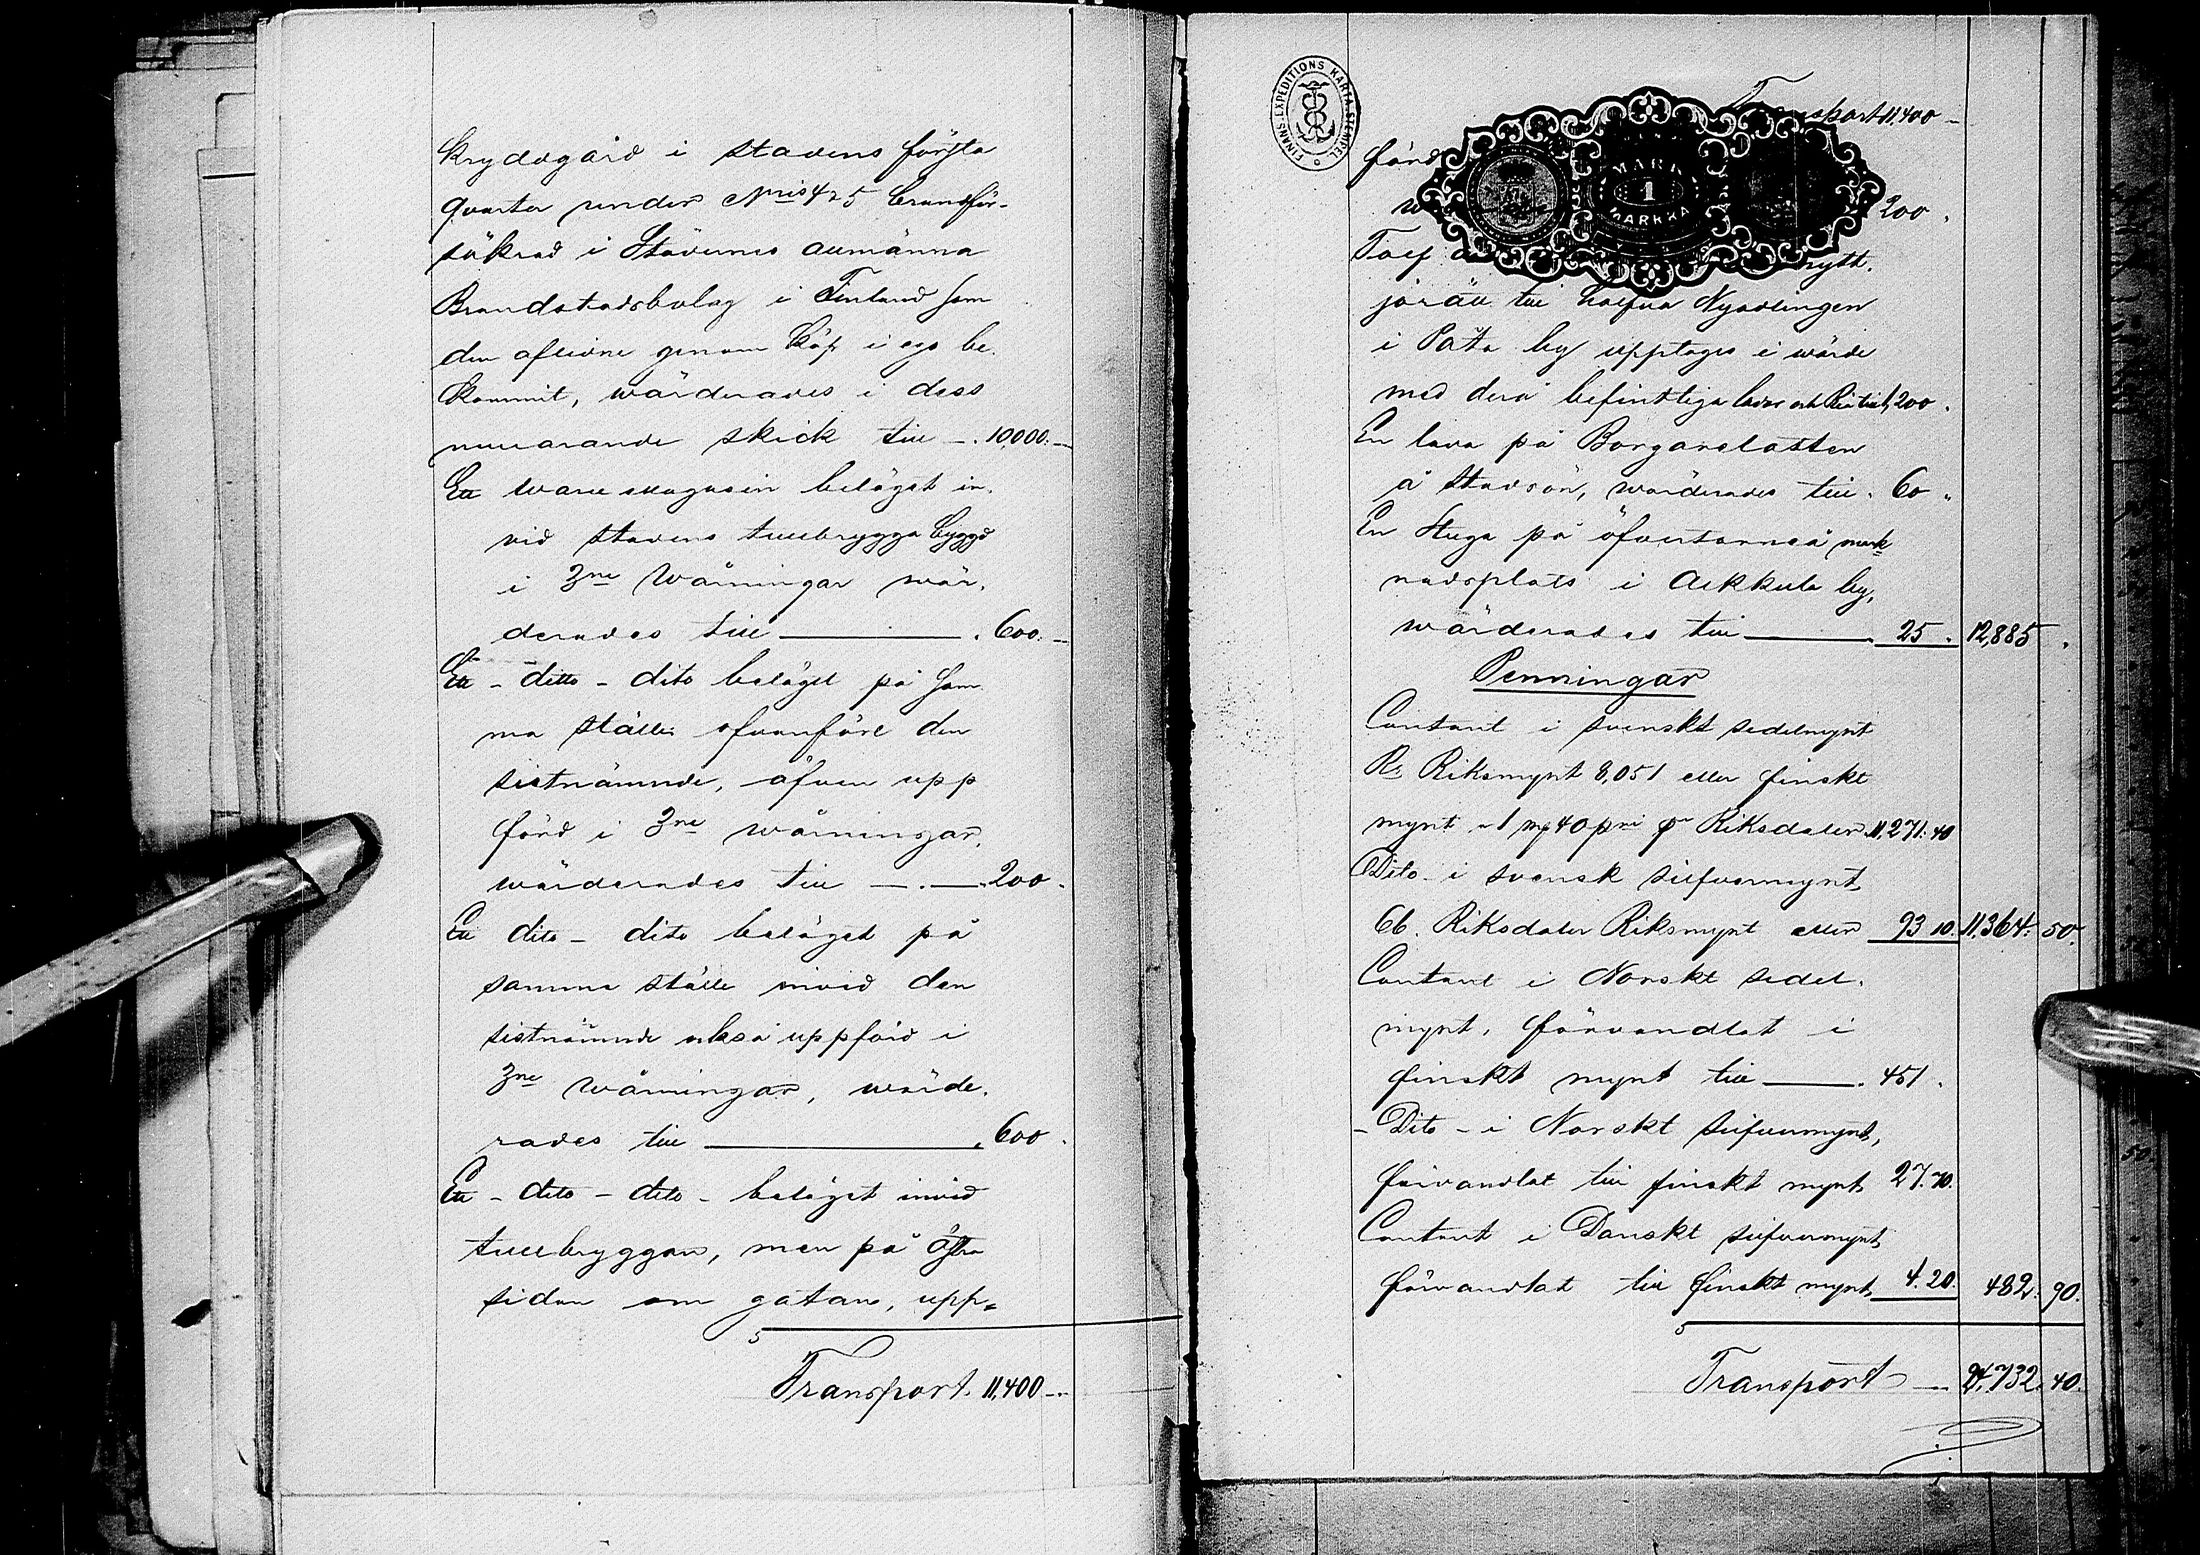 Krydogård i stadens första
qvarter under Nris 4 & 5 brandför-
säkrad i Städernes allmänna
Brandstodsbolag i Finland som
den aflidne genom köp i ego be-
kommit, wärderades i dess
nuvarande skick till —. 10,000. —
Ett waru magasin beläget in-
vid stadens tullbrygga byggd
i 3ne Wåningar wär-
derades till ——— . 600. —
Ett - ditto - dito beläget på sam-
ma ställe ofvanföre den
sistnämnde, äfven upp
förd i 3ne wåningar,
wärderades till —.—. 200.
Ett dito - dito beläget på
samma ställe invid den
sistnämnde också uppförd i
3ne wåningar, wärde-
rades till ——— . 600.
Ett - dito - dito - beläget invid
tullbryggan, men på östra
sidan om gatan, upp-
Transport. 11,400 —
FINANS-EXPEDITIONS KARTA-STEMPEL
Transport 11,400 —
förd
200.
MARK
1
MARKKA
Tolf nytt-
jorätt till halfva Nyodlingen
i Pata by upptages i wärde
med derå befintliga lador och Ria till, 200.
En lada på Borgarelotten
å Stadsön, wärderades till . 60 .
En Stuga på öfvertorneå mark-
nadsplats i Alkkula by,
wärderades till ——— 25 . 12,885 .
Penningar
Contant i svenskt sedelmynt
Rd Riksmynt 8,051 eller finskt
mynt a 1 mk 40 pni pr Riksdaler. 11,271. 40
Dito - i svensk silfvermynt,
66. Riksdaler Riksmynt eller 93 10. 11,364. 50.
Contant i Norskt sedel-
mynt, förvandlat i
finskt mynt till ——— . 451 .
- Dito - i Norskt silfvermynt,
förvandlat till finskt mynt 27. 70.
Contant i Danskt silfvermynt
förvandlat till finskt mynt 4. 20. 482. 90.
Transport — 24,732. 40.
50.